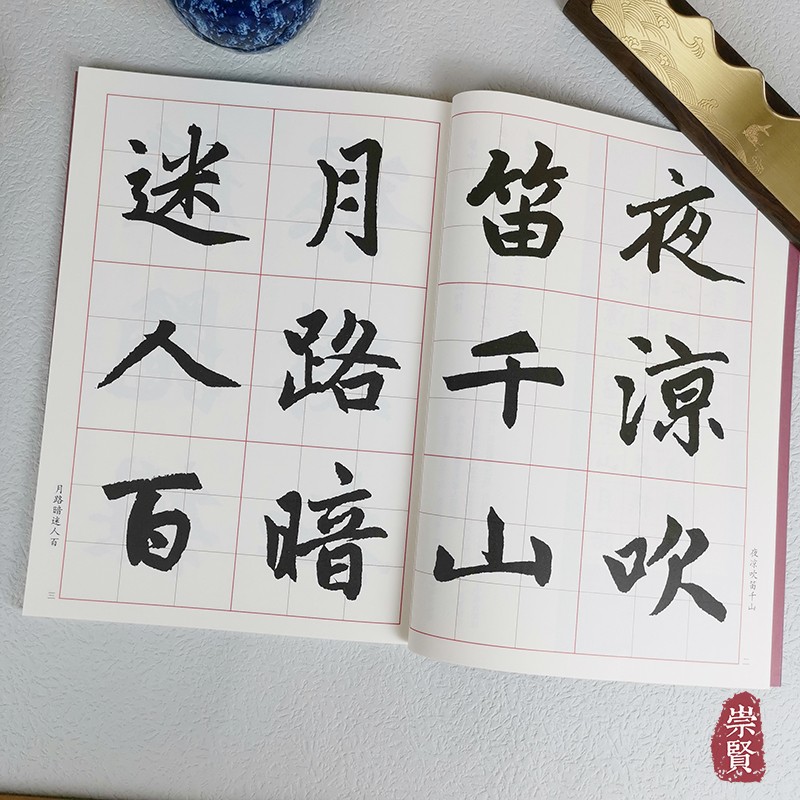 夜涼吹
笛千山
月路暗
迷人百
夜凉吹笛千山
二
月路暗迷人百
三
崇賢